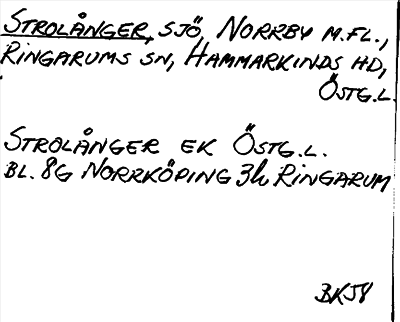 STROLÅNGER, SJÖ, NORRBY M.FL.,
RINGARUMS SN, HAMMARKINDS HD,
ÖSTG.L.
STROLÅNGER EK ÖSTG.L.
BL. 8G NORRKÖPING 3h RINGARUM
BK58